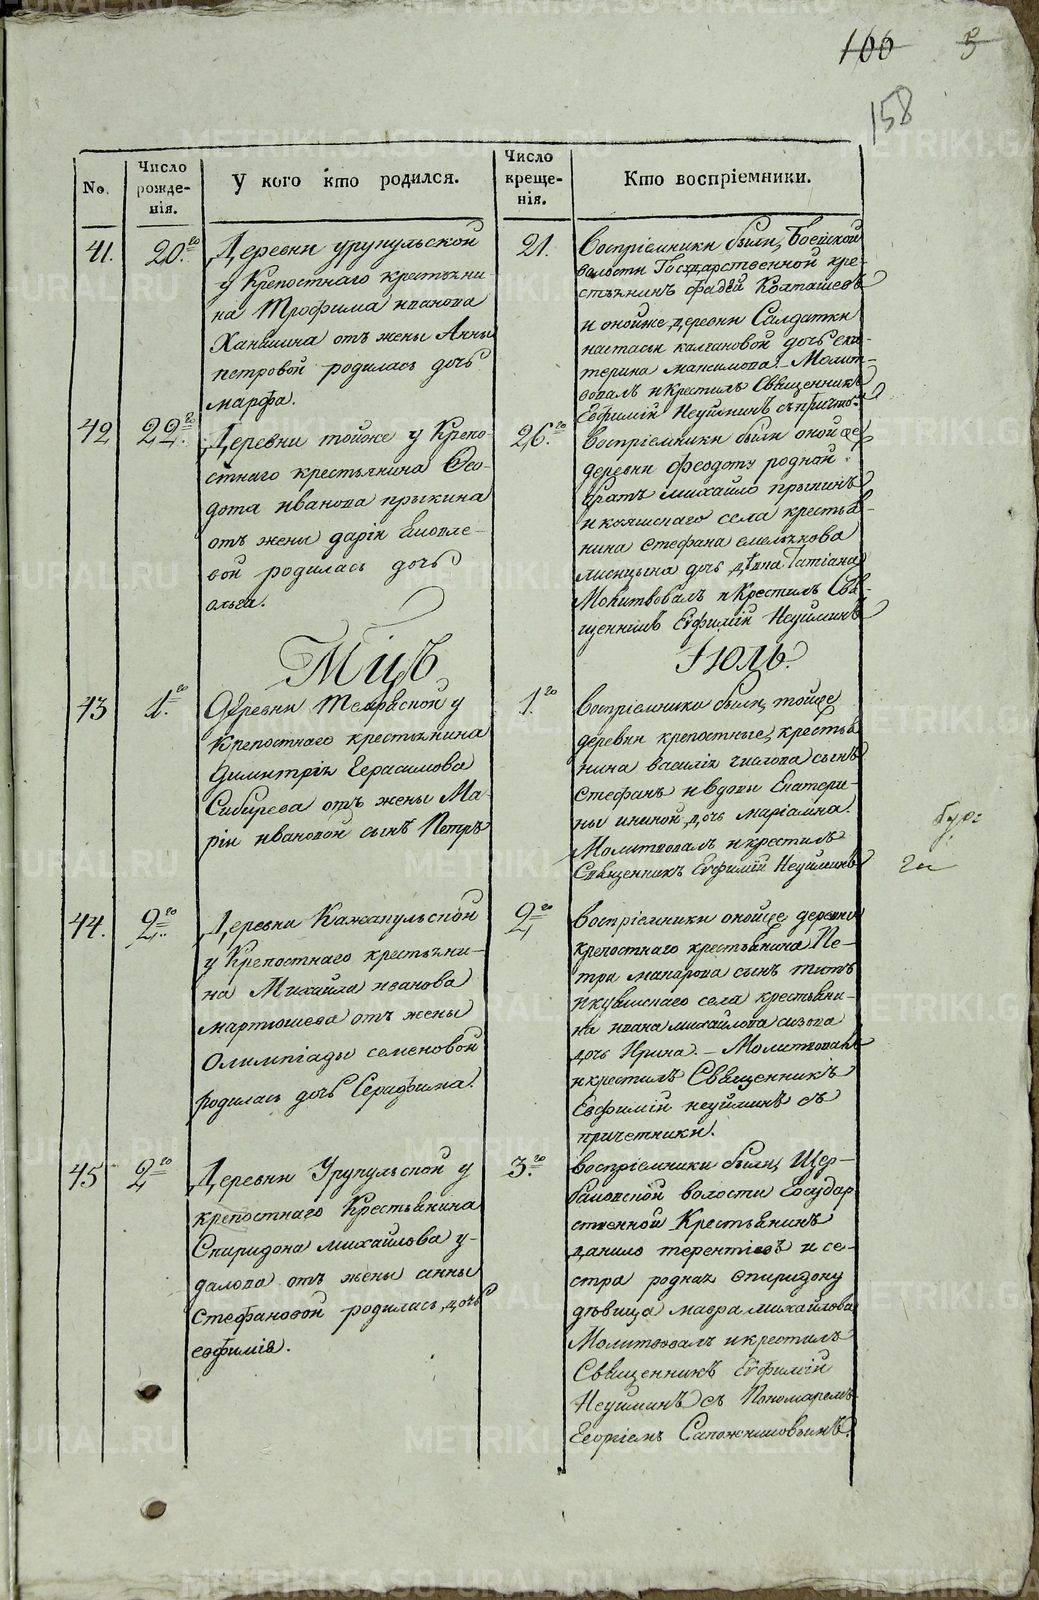 100 5
158
№.
Число рожде-нія.
У кого кто родился.
Число креще-нія.
Кто воспріемники.
41.
20.го
Деревни урупульской
у Крепостнаго крестьяни-
на Трофима иванова
Ханьшина отъ жены Анны
петровой родилась дочь
марфа.
21.
Воспріемники были, Боевской
волости Государственной кре-
стьянинъ Фадей
и онойже деревни Салдатки
настасьи калгановой дочь ека-
терина максимова. Молит-
вовалъ и Крестилъ Священникъ
Евфимій Неуйминъ съ причто:
42
22.го
Деревни тойже у Крепо-
стнаго крестьянина Ѳео-
дота иванова прыкина
отъ жены даріи
родилась дочь
ольга.
26.го
Воспріемники были онойже
деревни феодоту родной
братъ михайло прыкинъ
и села крестья-
нина стефана емельянова
лисицына дочь Татіана
Молитвовалъ и Крестилъ Свя-
щенникъ Евфимій Неуйминъ
Мцъ Іюль.
43
1.го
Деревни у
Крепостнаго крестьянина
Димитрія Герасимова
Сибирева отъ жены Ма-
ріи ивановой сынъ Петръ
1.го
Воспріемники были, тойже
деревни крепостные, крестья
нина василія сынъ
Стефанъ и вдовы Екатери-
ны дочь маріамна.
Молитвовалъ и крестилъ
Священникъ Евфимій Неуйминъ
44.
2.го
Деревни Кажакульской
у Крепостнаго крестьяни-
на Михайла иванова
мартюшева отъ жены
Олимпіады семеновой
родилась дочь Серафима.
2.го
Воспріемники онойже деревни
крепостнаго крестьянина Пе-
тра макарова сынъ титъ
и села крестьяни-
на ивана михайлова сизова
дочь Ирина. - Молитвовалъ
и крестилъ Священникъ
Евфимій неуйминъ съ
причетники.
45
2го
Деревни Урупульской у
крепостнаго Крестьянина
Спиридона михайлова у-
далова отъ жены анны
Стефановой родилась, дочь
евфимія.
3.го
Воспріемники были, Щер-
баковской волости Государ
ственной Крестьянинъ
данило терентіевъ и се-
стра родная спиридону
дѣвица мавра михайлова
Молитвовалъ и крестилъ
Священникъ Евфимій
Неуйминъ съ Пономаремъ
Георгіемъ Сапожниковымъ.
METRIKI.GASO-URAL.RU